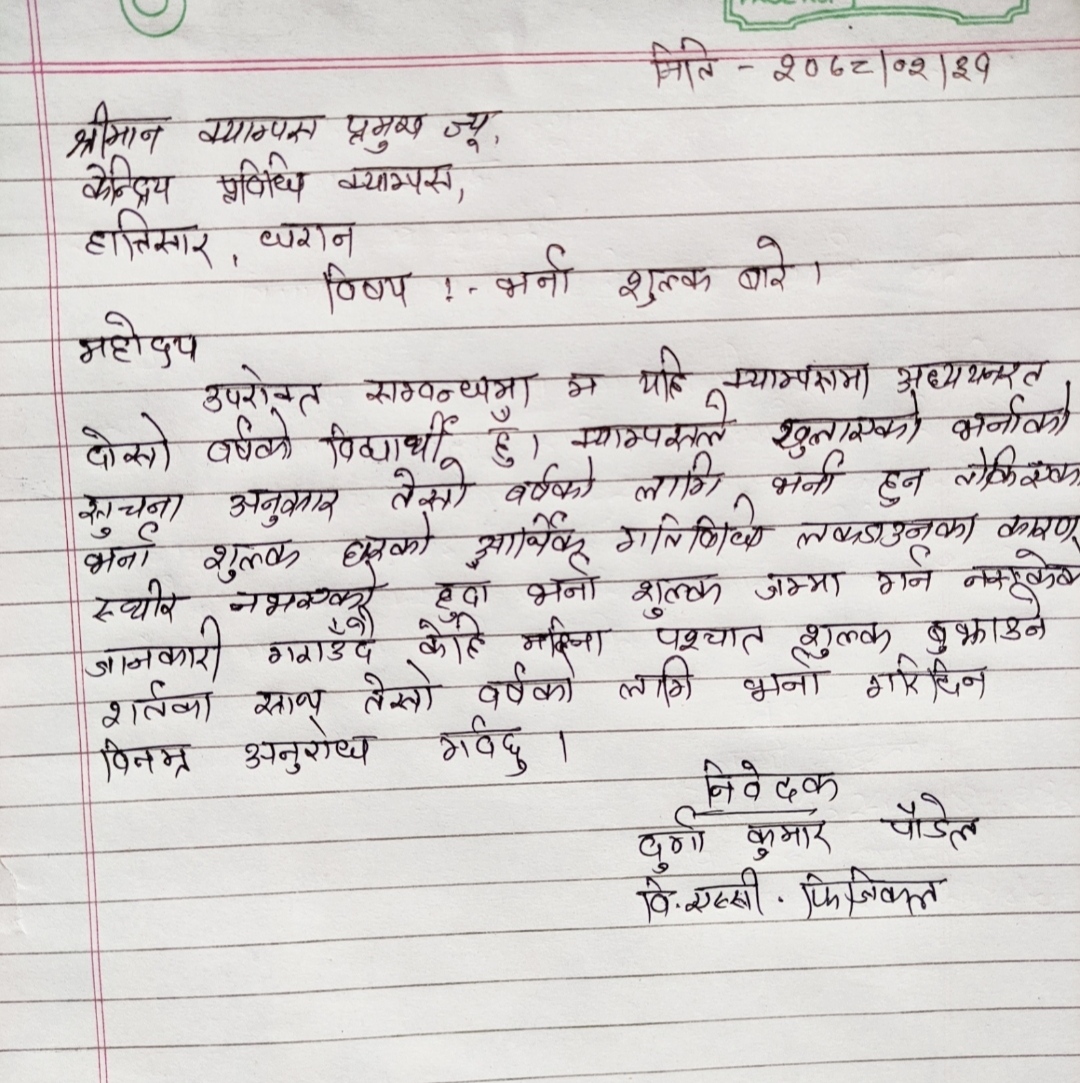 मिति - २०७८|०२|३१
श्रीमान क्याम्पस प्रमुख ज्यू,
केन्द्रिय प्रविधि क्याम्पस,
हात्तिसार, धरान
विषय :- भर्ना शुल्क बारे ।
महोदय
उपरोक्त सम्वन्धमा म यहि क्याम्पसमा अध्ययनरत
दोस्रो वर्षको विद्यार्थी हुँ । क्याम्पसले खुलाएको भर्नाको
सुचना अनुसार तेस्रो वर्षको लागि भर्ना हुन तोकिएका
भर्ना शुल्क घरको आर्थिक गतिविधि लकडाउनका कारण
स्थीर नभएको हुदा भर्ना शुल्क जम्मा गर्न नसकेको
जानकारी गराउँदै केहि महिना पश्चात शुल्क बुझाउने
शर्तका साथ तेस्रो वर्षको लागि भर्ना गरिदिन
विनम्र अनुरोध गर्दछु ।
निवेदक
दुर्गा कुमार पौडेल
वि.एस्सी. फिजिकल